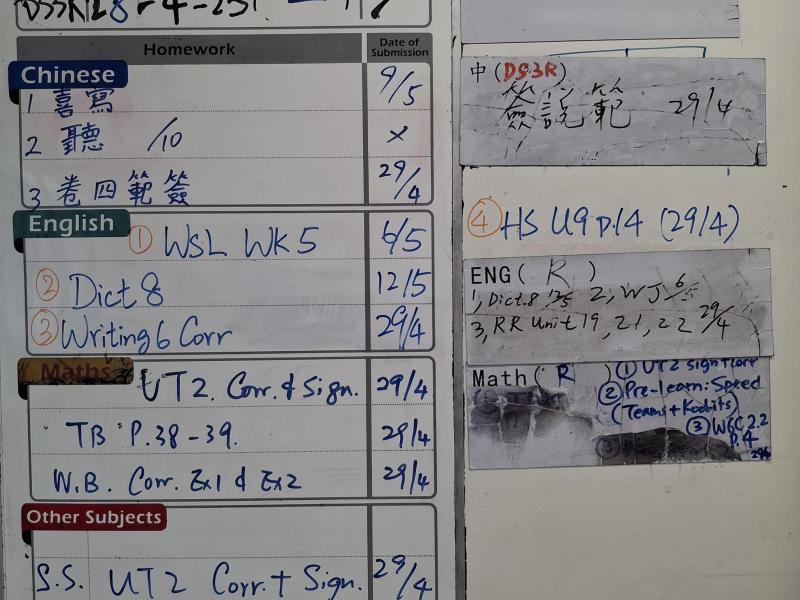 Homework
Date of Submission
Chinese
1 喜寫 9/5
2 聽 /10 ×
3 卷四範簽 29/4
English
① WSL WK 5 6/5
② Dict 8 12/5
③ Writing 6 Corr 29/4
Maths
UT2. Corr. & Sign. 29/4
TB P.38-39. 29/4
W.B. Corr. Ex1 & Ex2 29/4
Other Subjects
S.S. UT2 Corr. + Sign. 29/4
中(DS3R)
簽說範 29/4
④ HS U9 P.14 (29/4)
ENG( R )
1, Dict.8 12/5 2, WJ 6/5
3, RR Unit 19, 21, 22 29/4
Math( R )
① UT2 sign+corr
② Pre-learn: Speed
(Teams + Koobits)
③ WGC 2.2
P.4